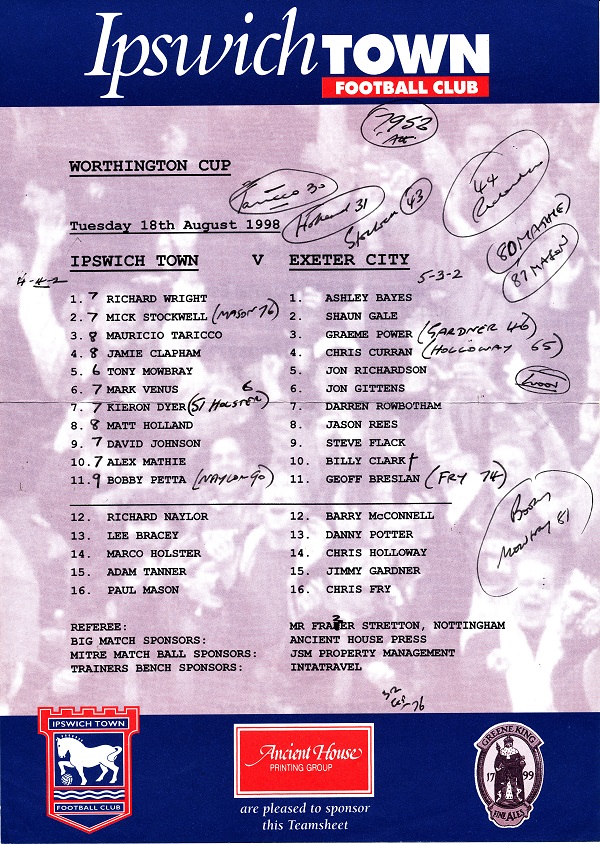 Ipswich TOWN
FOOTBALL CLUB
7952
Att
WORTHINGTON CUP
Taricco 30
Holland 31
Stockwell 43
44
Richardson
80 MATHIE
87 MASON
Tuesday 18th August 1998
IPSWICH TOWN V EXETER CITY
4-4-2
5-3-2
1. 7 RICHARD WRIGHT
2. 7 MICK STOCKWELL (MASON 76)
3. 8 MAURICIO TARICCO
4. 8 JAMIE CLAPHAM
5. 6 TONY MOWBRAY
6. 7 MARK VENUS
7. 7 KIERON DYER (51 HOLSTER) 6
8. 8 MATT HOLLAND
9. 7 DAVID JOHNSON
10. 7 ALEX MATHIE
11. 9 BOBBY PETTA (NAYLOR 90)
1. ASHLEY BAYES
2. SHAUN GALE
3. GRAEME POWER (GARDNER 46)
4. CHRIS CURRAN (HOLLOWAY 65)
5. JON RICHARDSON
6. JON GITTENS
7. DARREN ROWBOTHAM
8. JASON REES
9. STEVE FLACK
10. BILLY CLARK
11. GEOFF BRESLAN (FRY 74)
12. RICHARD NAYLOR
13. LEE BRACEY
14. MARCO HOLSTER
15. ADAM TANNER
16. PAUL MASON
12. BARRY McCONNELL
13. DANNY POTTER
14. CHRIS HOLLOWAY
15. JIMMY GARDNER
16. CHRIS FRY
Book
Mowbray 81
REFEREE: MR FRAZER STRETTON, NOTTINGHAM
BIG MATCH SPONSORS: ANCIENT HOUSE PRESS
MITRE MATCH BALL SPONSORS: JSM PROPERTY MANAGEMENT
TRAINERS BENCH SPONSORS: INTATRAVEL
IPSWICH TOWN
FOOTBALL CLUB
Ancient House
PRINTING GROUP
are pleased to sponsor
this Teamsheet
GREENE KING
1799
FINE ALES